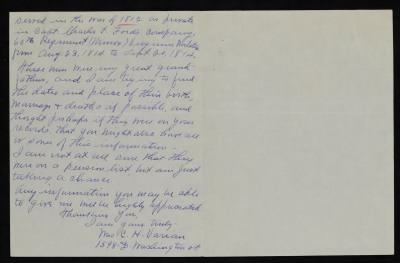 served in the War of 1812 as private
in Capt Charles T. Fords Company,
60th Regiment Virginia Militia
from Aug 23, 1814 to Sept 20, 1814.
These men were my great grand-
fathers, and I am trying to find
the dates and place of their births,
marriage & deaths if possible, and
thought perhaps if they were on your
records, that you might also have all
or some of this information.
I am not at all sure that they
were on a pension list, but am just
taking a chance.
Any information you may be able
to give me will be highly appreciated
Thanking you,
I am yours truly
Mrs C. H. Varian
1598 Washington st